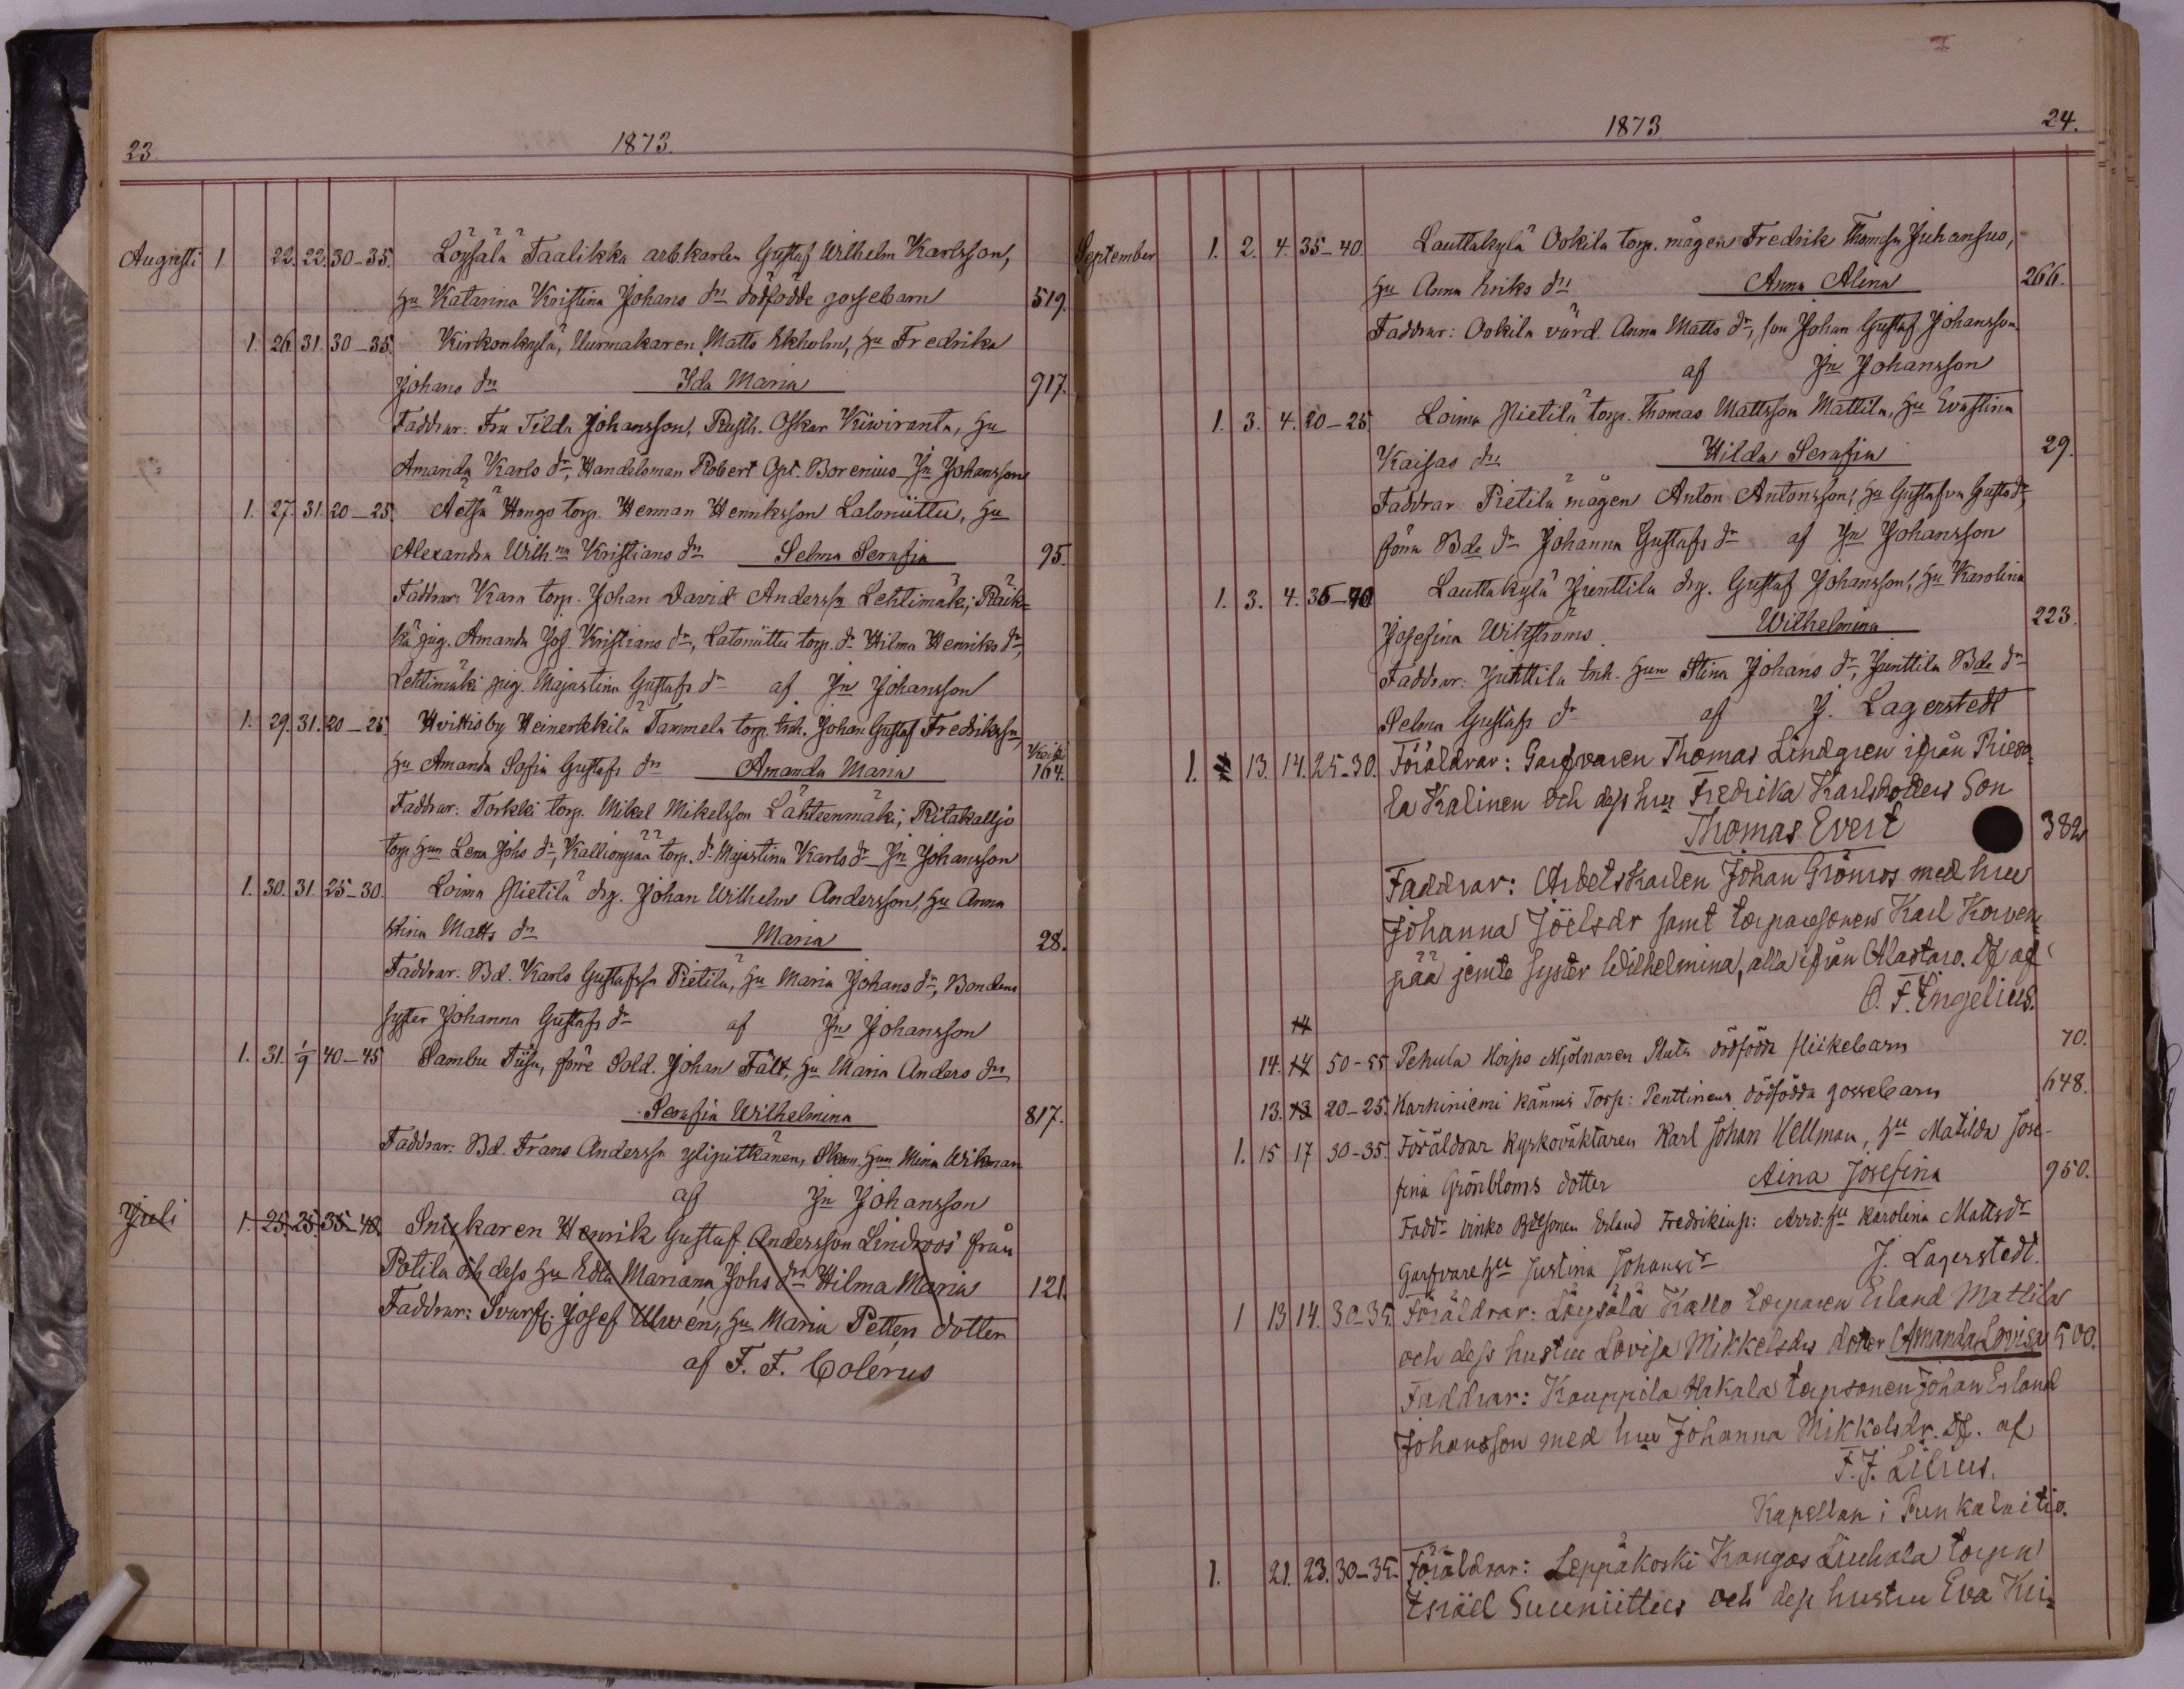 23. 1873.
Augusti 1 22. 22. 30-35. Löysälä Taalikka arb.karlen Gustaf Wilhelm Karlsson,
Hu Katarina Kristina Johans dr dödfödde gossebarn 519.
1. 26. 31. 30-35. Kirkonkylä, Uurmakaren Matts Ekholm, Hu Fredrika
Johans dr Ida Maria 917.
Faddrar: Fru Tilda Johansson, Rusth. Oskar Kiwiranta, Hu
Amanda Karls dr, Handelsman Robert Borenius Jn Johansson
1. 27. 31. 20-25. Äetsä Hongo torp. Herman Henriksson Laloniittu, Hu
Alexandra Wilh.na Kristians dr Selma Serafia 95.
Faddrar: Kara torp. Johan David Anderss Lehtimäki, Räik=
kä pig. Amanda Jos. Kristians dr, Latoniittu torp. dr Hilma Henriks dr,
Lehtimäki pig. Majastina Gustafs dr af Jn Johansson
1. 29. 31. 20-25. Hvittisby Heinerkkilä Tammela torp. inh. Johan Gustaf Fredrikssn,
Hu Amanda Sofia Gustafs dr Amanda Maria 164.
Faddrar: Torkki torp. Mikel Mikelsson Lähteenmäki, Ritakallio
torp. Hun Lena Johs dr, Kallionpää torp. dr Majastina Karls dr Jn Johansson
1. 30. 31. 25-30. Loima Pietilä drg. Johan Wilhelm Andersson, Hu Anna
Stina Matts dr Maria 28.
Faddrar: Bd. Karls Gustafssn Pietilä, Hu Maria Johans dr, Bondens
syster Johanna Gustafs dr af Jn Johansson
1. 31. 1/9 40-45 Sambu Tiisu, förre Sold. Johan Fält, Hu Maria Anders dr
Serafia Wilhelmina 817.
Faddrar: Bd. Frans Anderssn Ylipitkänen, Skom. Hun Mina Wikman
af Jn Johansson
Juli 1. 25. 25. 35-40. Snickaren Henrik Gustaf Andersson Lindroos från
Potila och dess Hu Edla Mariana Johs dr Hilma Maria 121.
Faddrar: Svarfv. Josef Ulwén, Hu Maria Petters dotter
af F. F. Colérus
1873 24.
September 1. 2. 4. 35-40. Lauttakylä Ookila torp. mågen Fredrik Thomssn Juhansuo,
Hu Anna Eriks dr Anna Alina 266.
Faddrar: Ookila värd. Anna Matts dr, son Johan Gustaf Johansson
af Jn Johansson
1. 3. 4. 20-25. Loima Pietilä torp. Thomas Mattsson Mattila, Hu Evastina
Kaisas dr Hilda Serafia 29.
Faddrar: Pietilä mågen Anton Antonsson, Hu Gustafva Gusts dr,
förra Bde dr Johanna Gustafs dr af Jn Johansson
1. 3. 4. 35-40 Lauttakylä Junttila drg. Gustaf Johansson, Hu Karolina
Josefina Wikströms Wilhelmina 223.
Faddrar: Junttila inh. Hun Stina Johans dr, Junttila Bde dr
Selma Gustafs dr af J. Lagerstedt
1. 13. 14. 25-30. Föräldrar: Garfvaren Thomas Lindgren ifrån Rieso
la Kalinen och dess hu Fredrika Karlsdotters Son
Thomas Evert 382
Faddrar: Arbetskarlen Johan Grönros med hu
Johanna Joëlsdr samt torparesonen Karl Korven
pää jemte syster Wilhelmina, alla ifrån Alastaro. Df af
O. F. Engelius.
14
14. 14 50-55 Pehula Hoipo Mjölnaren Ruta dödfödda flickebarn 70.
13. 13 20-25. Karhiniemi kännis Torp: Penttinens dödfödda gossebarn 648.
1. 15 17 30-35. Föräldrar Kyrkovaktaren Karl Johan Hellman, Hu Matilda Jose-
fina Grönbloms dotter Aina Josefina 950.
Faddr Vinko Bdesonen Erland Fredrikinp: Arrd: Hu Karolina Mattsdr
Garfvare Hu Justina Johansdr J. Lagerstedt.
1 13 14. 30-35. Föräldrar: Löysälä Kallo torparen Erland Mattila
och dess hustru Lovisa Mikkelsdrs dotter Amanda Lovisa 500.
Faddrar: Kauppila Hakala torpsonen Johan Erland
Johansson med hu Johanna Mikkelsdr. Df. af
F. J. Lilius.
Kapellan i Punkalaitio.
1. 21. 23. 30-35. Föräldrar: Leppäkoski Kangas Liuhala torpn
Israël Suuniittus och dess hustru Eva Kri=